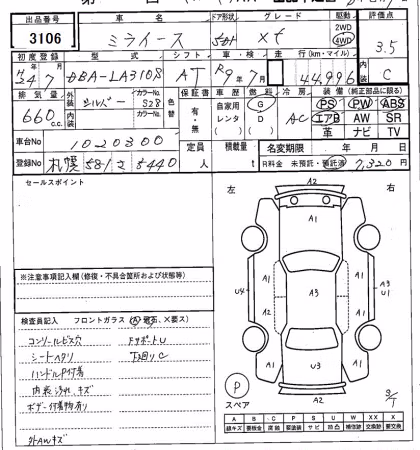 出品番号 車名 ドア形状 グレード 駆動 評価点
3106 ミライース 5ドア Xf 2WD 4WD 3.5
初度登録 型式 シフト 車・検 走行(km・マイル) 内装
H24年7月 DBA-LA310S AT R9年7月 44,996 C
排気量 外装 シルバー カラーNo. S28 色替 保証書 車歴 燃料 冷房 装備(純正部品に限る)
660c.c. 内装 カラーNo. 有・無 自家用 レンタ G D AC PS PW ABS
エアB AW SR
革 ナビ TV
車台No 1020300 定員 人 積載量 t 名変期限 年 月 日
登録No 札幌 581 さ 5440 R料金 未預託・預託済 7,320円
セールスポイント
左 右
A2
A1
A1 A1
U4 A2 A3 A2 A3 U1
A1 A1
U3
A2
※注意事項記入欄(修復・不具合箇所および状態等)
検査員記入 フロントガラス (A 飛石、X要ス)
コンソールビス穴 FサポートU
シートヘタリ 下廻りC
ハンドル内付着
内装汚れ、キズ
ボデー付着物有り
外AWキズ
P
スペア
A B C P S U W X XX
線キズ 要板金 腐蝕 要塗装 サビ 凹凸 補修跡 要交換 交換